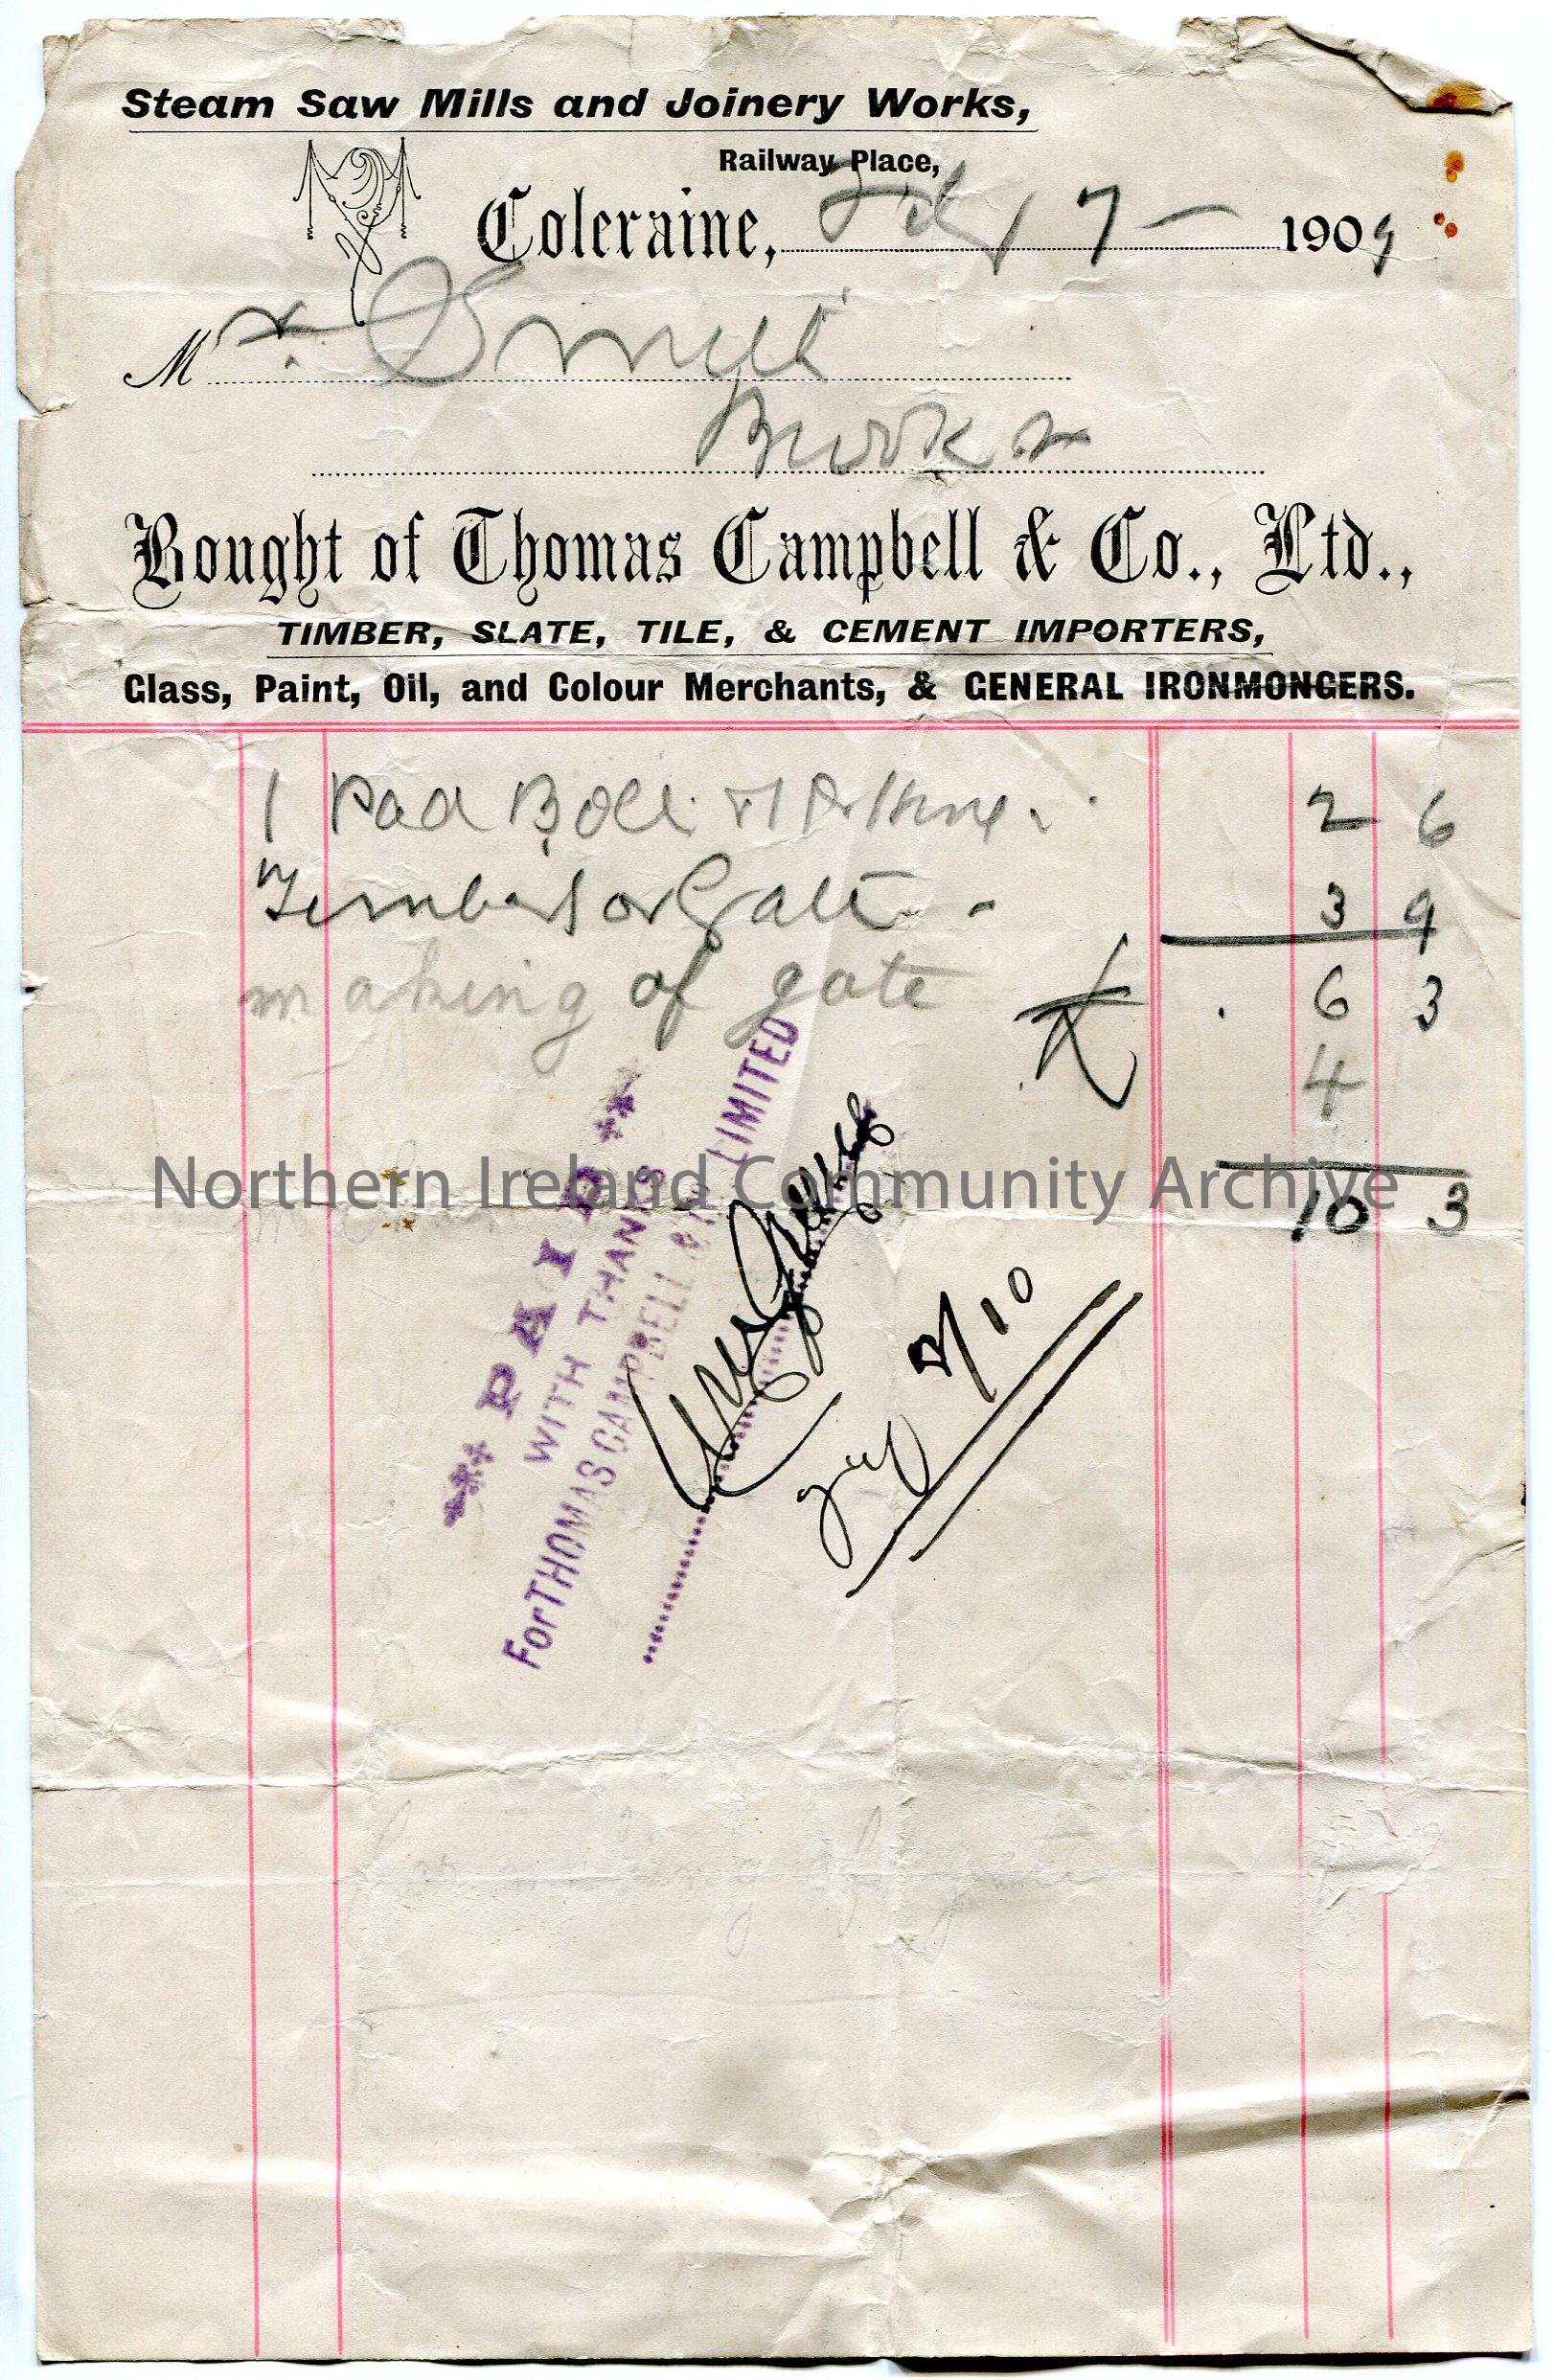 Steam Saw Mills and Joinery Works,
Railway Place,
Coleraine, 17 1909
Mr. Smith
Bought of Thomas Campbell & Co., Ltd.,
TIMBER, SLATE, TILE, & CEMENT IMPORTERS,
Glass, Paint, Oil, and Colour Merchants, & GENERAL IRONMONGERS.
1 Pad Bolt 2 6
Timber for Gate - 3 9
making of gate 6 3
4
Northern Ireland Community Archive
10 3
PAID
WITH THANKS
For THOMAS CAMPBELL LIMITED
8/10
making of gate